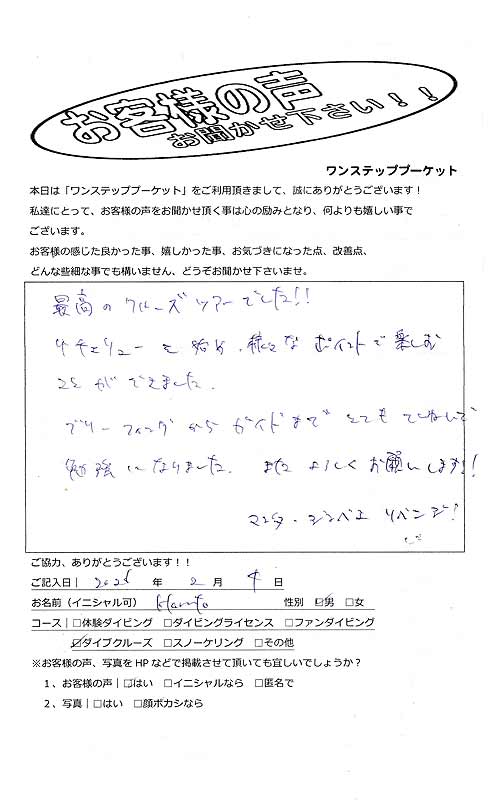 お客様の声
お聞かせ下さい！！
ワンステッププーケット
本日は「ワンステッププーケット」をご利用頂きまして、誠にありがとうございます！
私達にとって、お客様の声をお聞かせ頂く事は心の励みとなり、何よりも嬉しい事で
ございます。
お客様の感じた良かった事、嬉しかった事、お気づきになった点、改善点、
どんな些細な事でも構いません、どうぞお聞かせ下さいませ。
最高のクルーズツアーでした!!
リチェリューを始め、様々なポイントで楽しむ
ことができました.
ブリーフィングからガイドまで とても ていねいで
勉強になりました. また よろしく お願いします!!
マンタ・ジンベエ リベンジ!
ご協力、ありがとうございます！！
ご記入日｜ 年 2 月 日
お名前（イニシャル可） 性別 ☑男 □女
コース｜□体験ダイビング □ダイビングライセンス □ファンダイビング
☑ダイブクルーズ □スノーケリング □その他
※お客様の声、写真を HP などで掲載させて頂いても宜しいでしょうか？
１、お客様の声｜☑はい □イニシャルなら □匿名で
２、写真｜□はい □顔ボカシなら